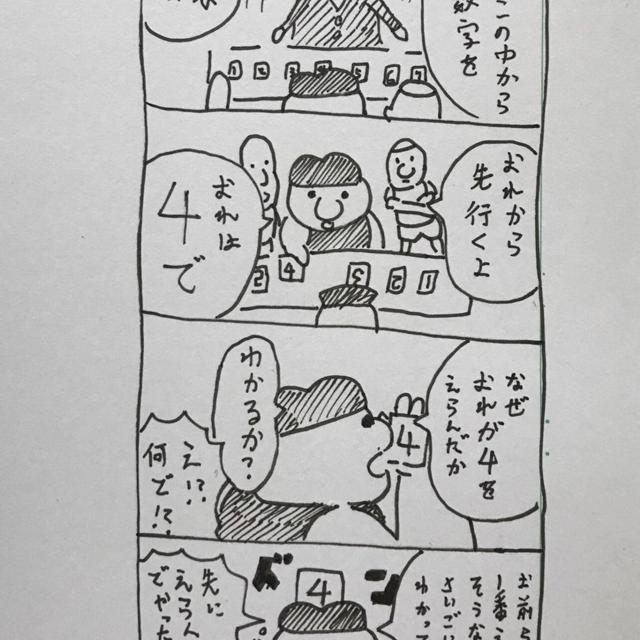 この中から
数字を
1 2 3 4 5 6 7
おれから
先行くよ
おれは
4で
5 4 3 2 1
なぜ
おれが4を
えらんだか
4
わかるか?
え!?
何で!?
お前ら
1番え
そうな
さいごに
わかって
バン
4
先に
えらん
でやった